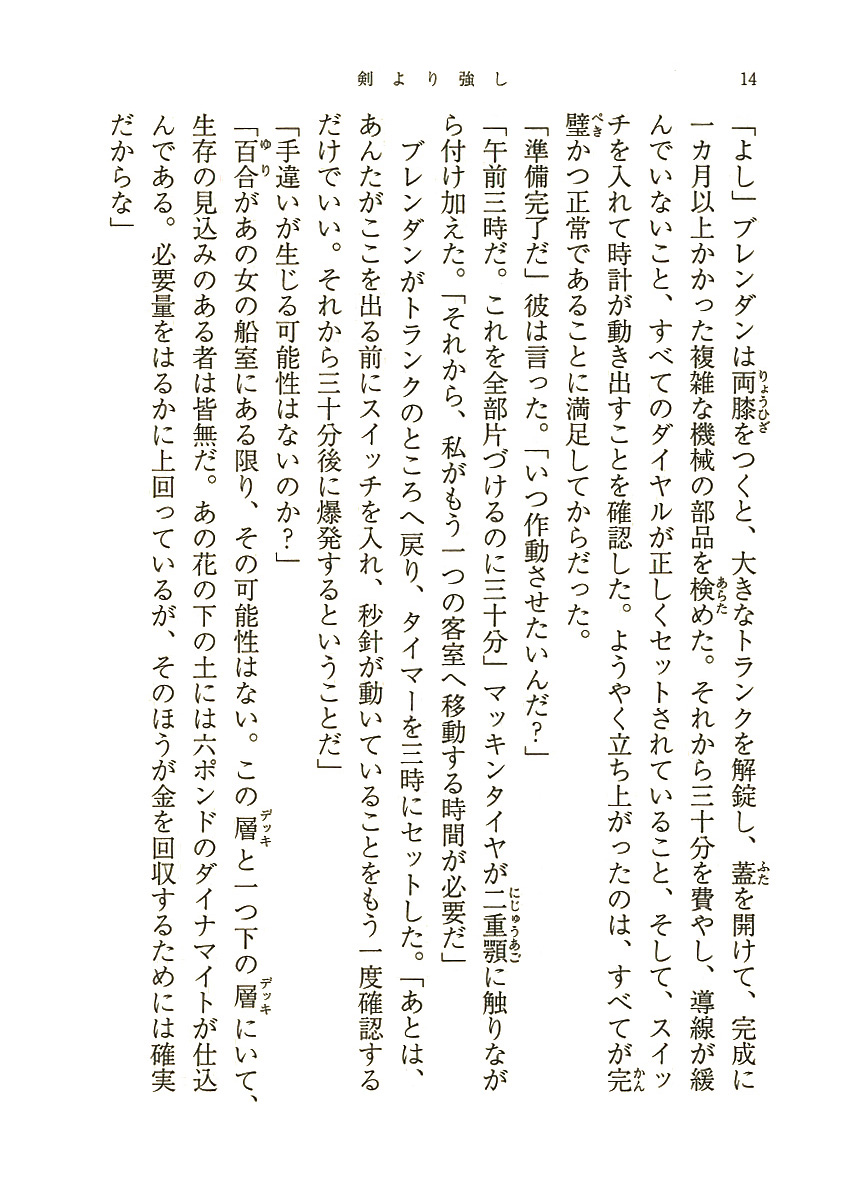 剣より強し
14
「よし」ブレンダンは両膝をつくと、大きなトランクを解錠し、蓋を開けて、完成に
一カ月以上かかった複雑な機械の部品を検めた。それから三十分を費やし、導線が緩
んでいないこと、すべてのダイヤルが正しくセットされていること、そして、スイッ
チを入れて時計が動き出すことを確認した。ようやく立ち上がったのは、すべてが完
璧かつ正常であることに満足してからだった。
「準備完了だ」彼は言った。「いつ作動させたいんだ?」
「午前三時だ。これを全部片づけるのに三十分」マッキンタイヤが二重顎に触りなが
ら付け加えた。「それから、私がもう一つの客室へ移動する時間が必要だ」
ブレンダンがトランクのところへ戻り、タイマーを三時にセットした。「あとは、
あんたがここを出る前にスイッチを入れ、秒針が動いていることをもう一度確認する
だけでいい。それから三十分後に爆発するということだ」
「手違いが生じる可能性はないのか?」
「百合があの女の船室にある限り、その可能性はない。この層と一つ下の層にいて、
生存の見込みのある者は皆無だ。あの花の下の土には六ポンドのダイナマイトが仕込
んである。必要量をはるかに上回っているが、そのほうが金を回収するためには確実
だからな」